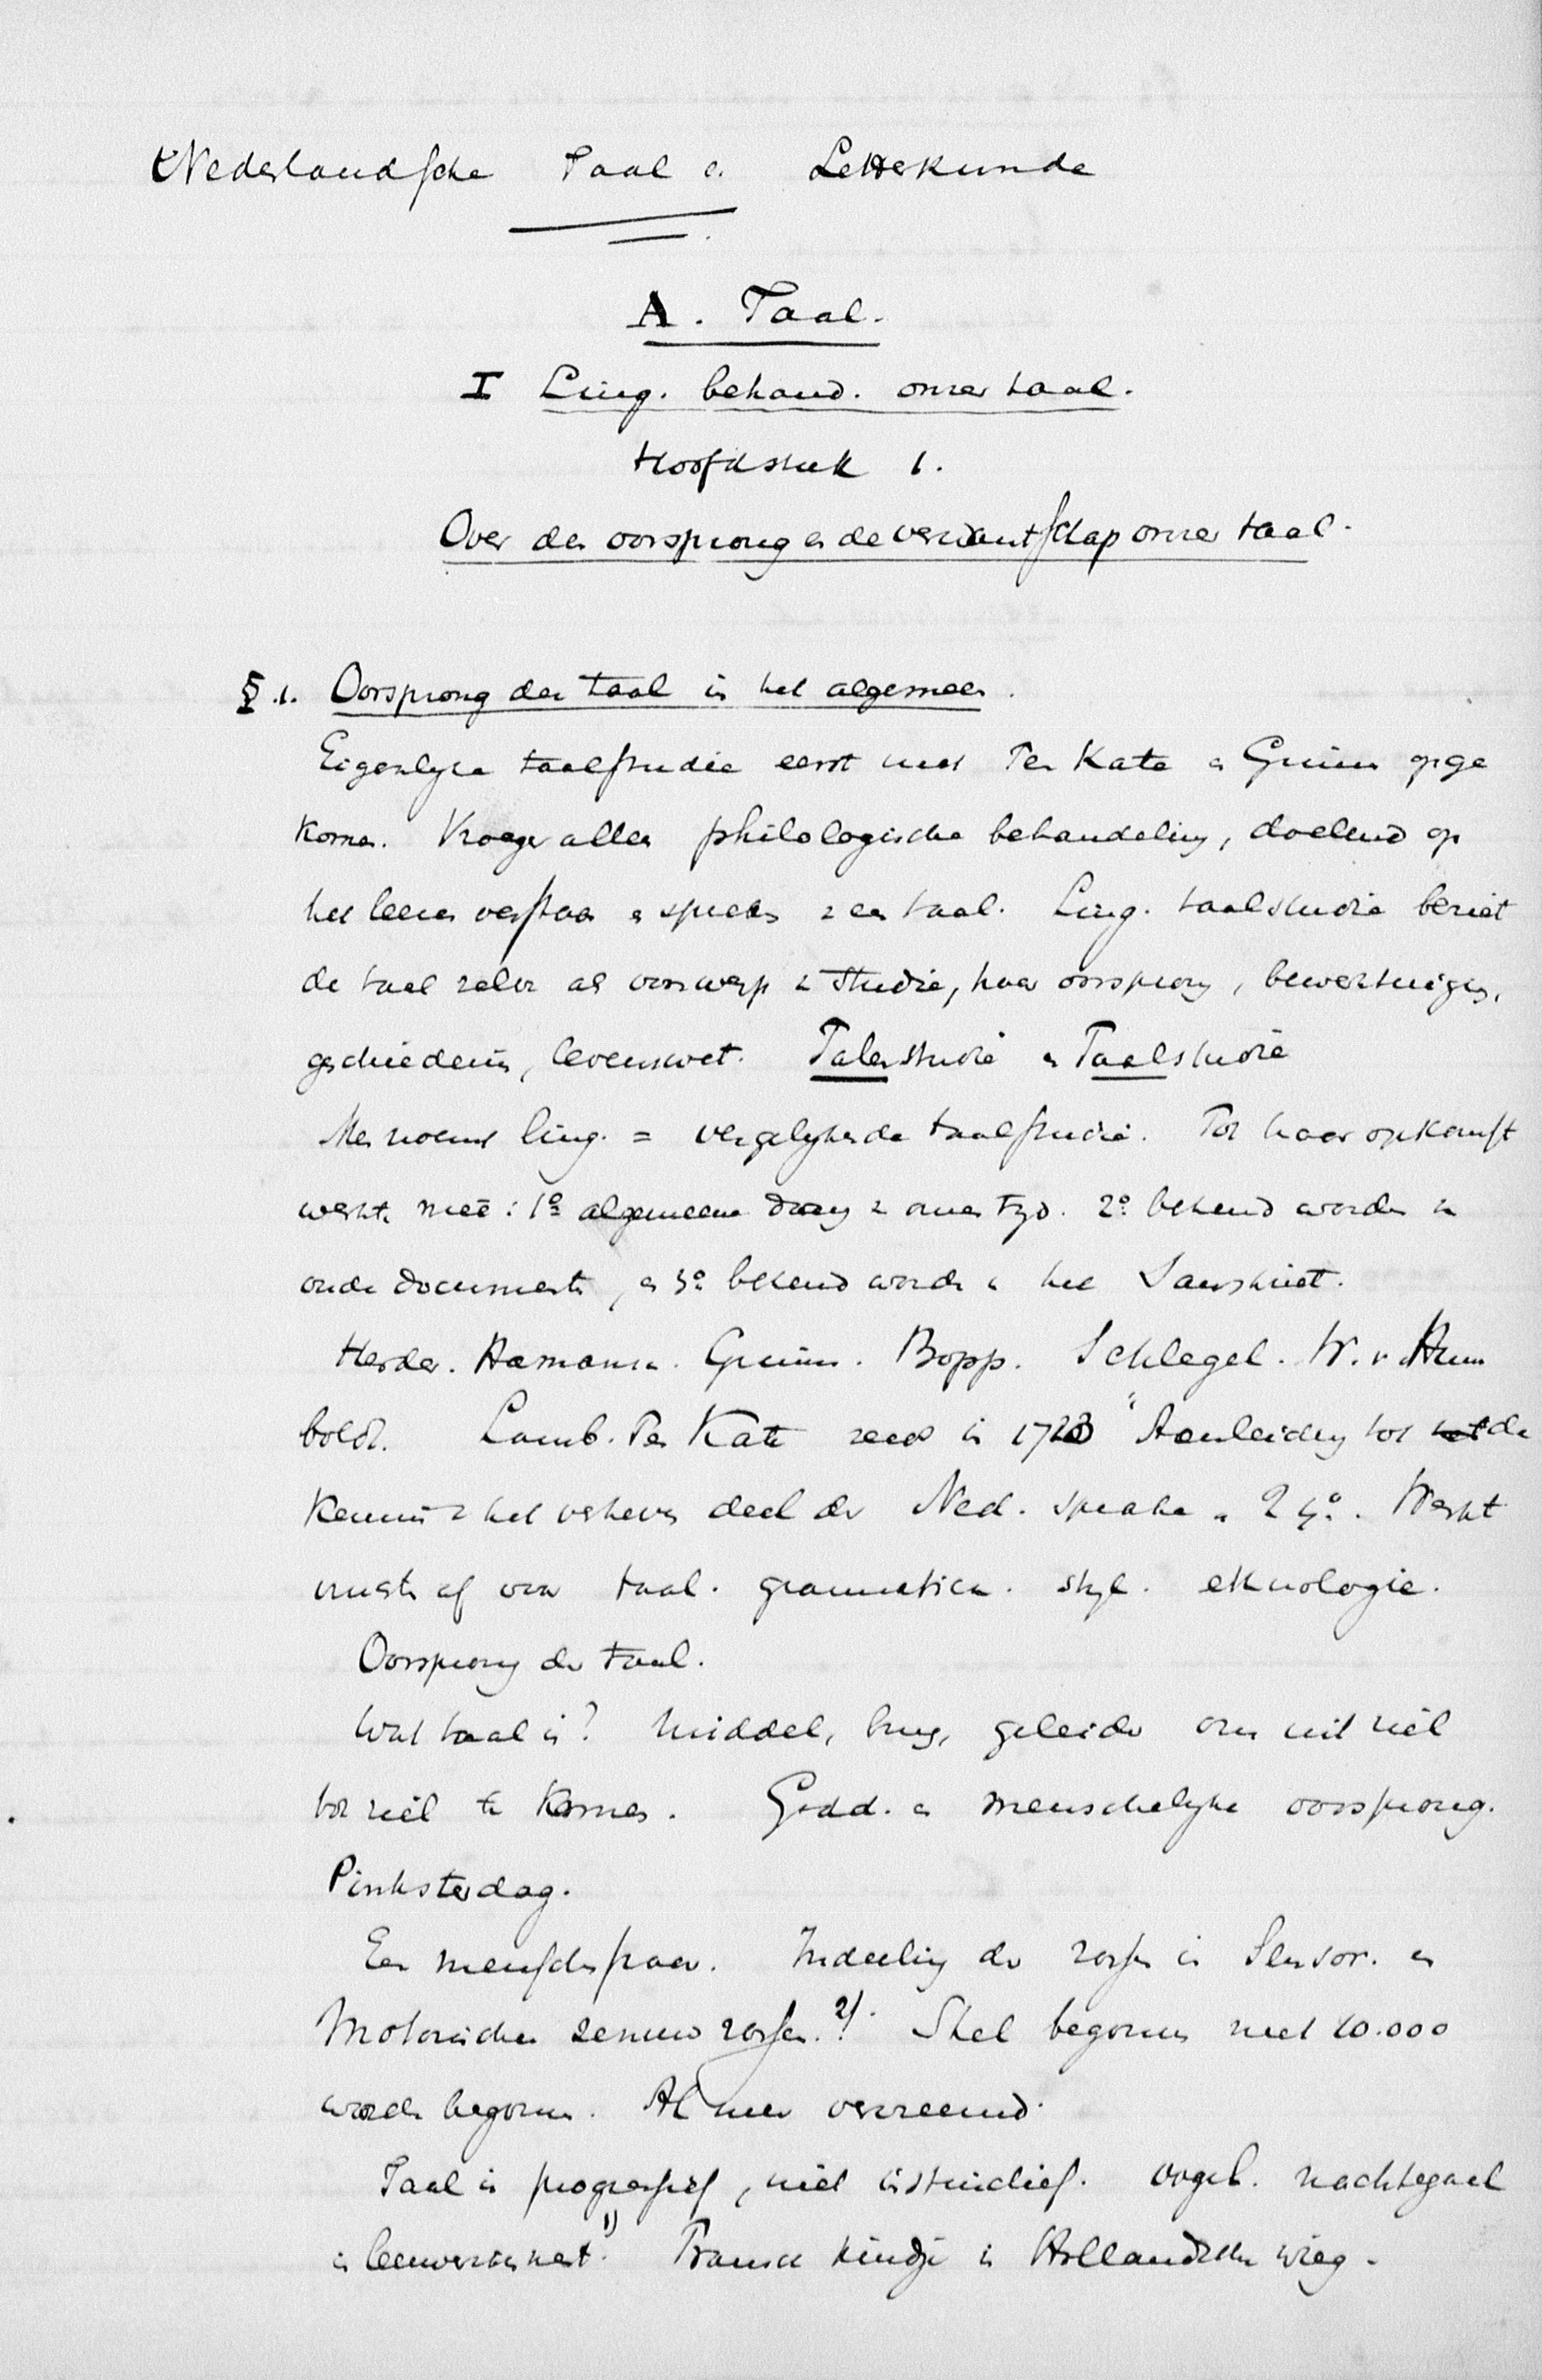 Nederlandsche Taal e. Letterkunde
A. Taal.
I Ling. behand. onzer taal.
Hoofdstuk 1.
Over den oorsprong en de verwantschap onzer taal.
§.1. Oorsprong der taal in het algemeen.
Eigenlyke taalstudie eerst met Ten Kate en Grimm opge
komen. Vroeger alleen philologische behandeling, doelend op
het leeren verstaan en spreken v een taal. Ling. taalstudie beziet
de taal zelve als voorwerp v studie, haar oorsprong, bewerktuigen,
geschiedenis, levenswet. Talenstudie en Taalstudie
Men noemt ling. = vergelykende taalstudie. Tot haar opkomst
werkte meê: 1o algemeene drang v onzen tyd. 2o bekend worden v
oude documenten, en 3o bekend worden v het Sanskriet.
Herder. Hamann. Grimm. Bopp. Schlegel. W. v. Hum
boldt. Lamb. Ten Kate reeds in 1723 "Aenleiding tot het de
Kennis v het verheven deel der Ned. sprake" 2 4o. Werkt
taal. grammatica. styl. ethnologie.
Oorsprong der taal.
Wat taal is? Middel, brug, geleider om uit ziel
tot ziel te komen. Godd. en menschelyke oorsprong.
Pinksterdag.
Een menschenpaar. Indeeling der in Sensor. en
Motorische zenuw 2). Stel begonnen met 10.000
woorden begonnen. Al meer vervreemd.
Taal is progressief, niet instinctief. vogel. nachtegaal
in leeuweriknest. 1) Fransch kindje in Hollandsche wieg.